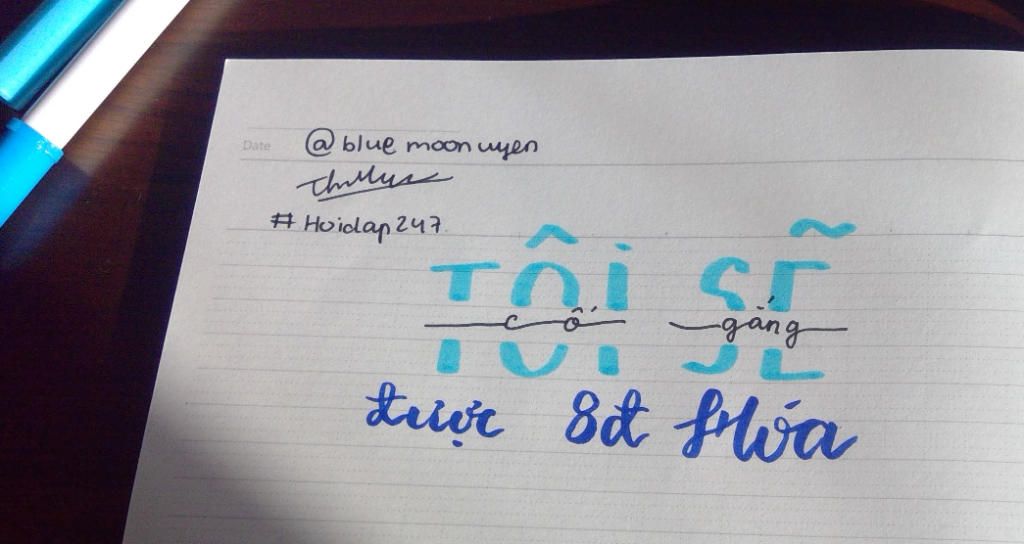 Date @bluemoonuyen
#Hoidap247
TÔI SẼ
cố gắng
được 8đ Hóa